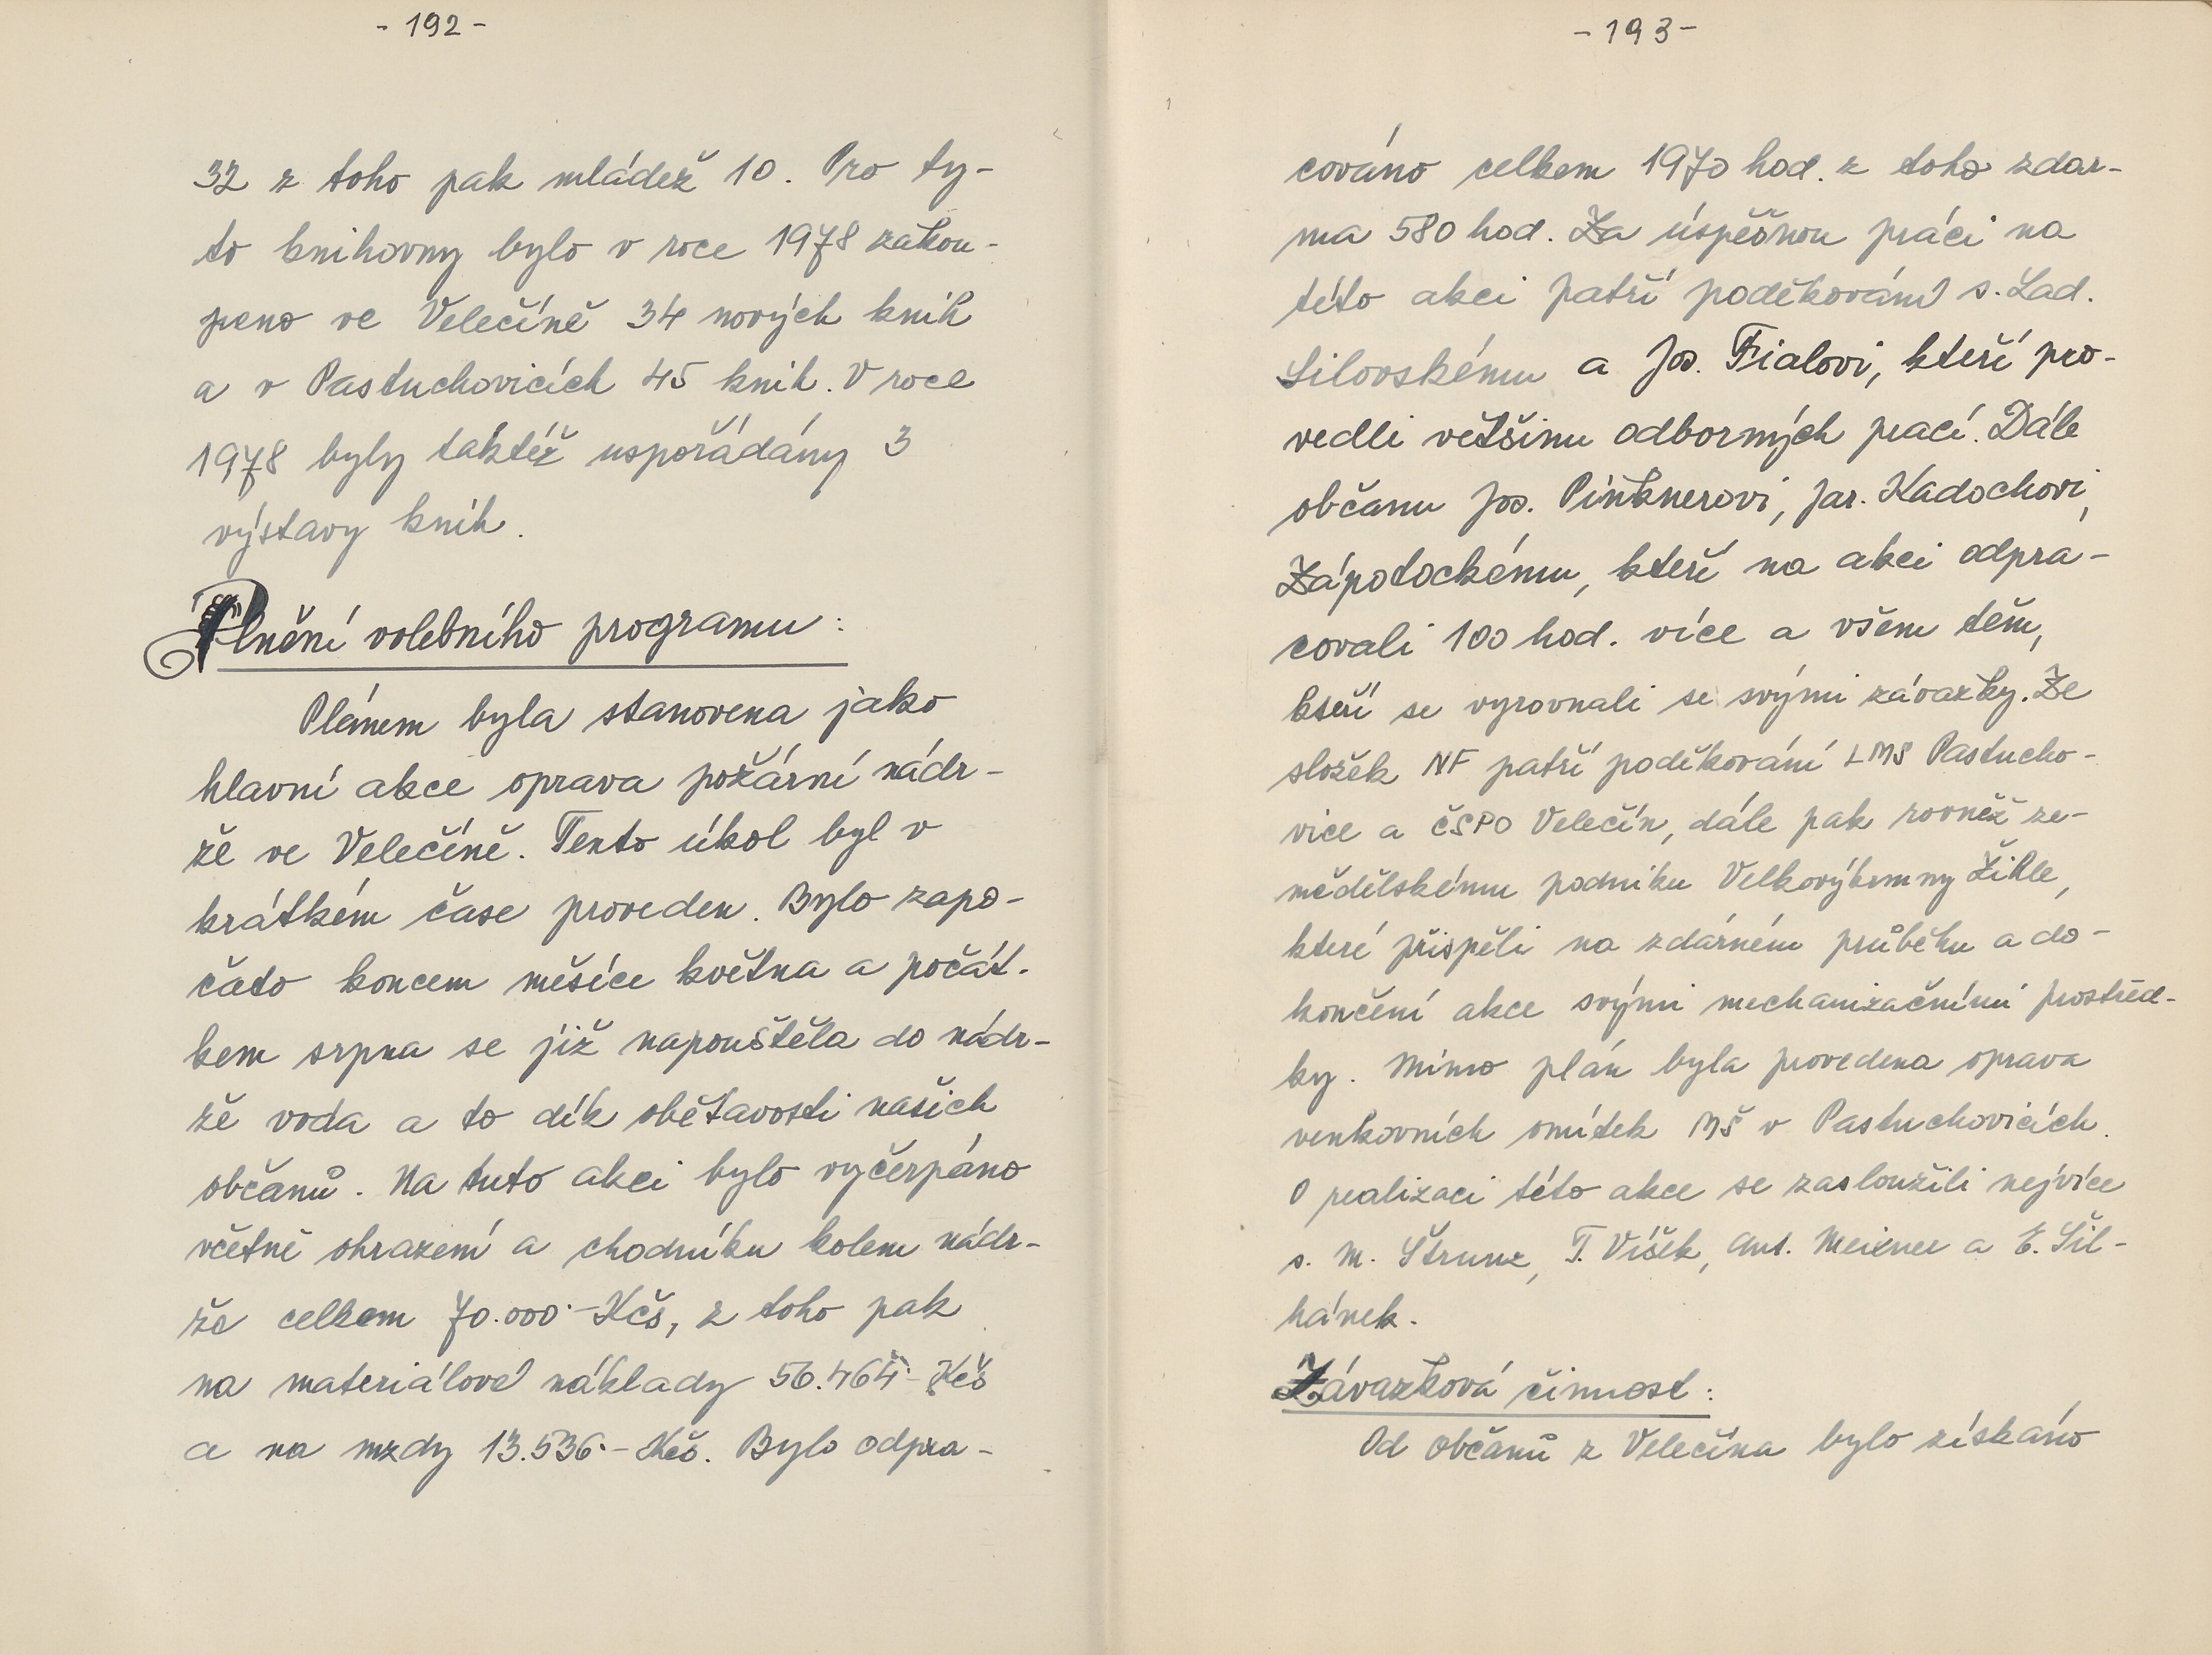 - 192 -
32 z toho pak mládež 10. Pro ty-
to knihovny bylo v roce 1978 zakou-
peno ve Velečíně 34 nových knih
a v Pastuchovicích 45 knih. V roce
1978 byly taktéž uspořádány 3
výstavy knih.
Plnění volebního programu:
Plánem byla stanovena jako
hlavní akce oprava požární nádr-
že ve Velečíně. Tento úkol byl v
krátkém čase proveden. Bylo zapo-
čato koncem měsíce května a počát-
kem srpna se již napouštěla do nádr-
že voda a to dík obětavosti našich
občanů. Na tuto akci bylo vyčerpáno
včetně ohrazení a chodníku kolem nádr-
že celkem 70.000.- Kčs, z toho pak
na materiálové náklady 56.464.- Kčs
a na mzdy 13.536.- Kčs. Bylo odpra-
- 193 -
cováno celkem 1970 hod. z toho zdar-
ma 580 hod. Za úspěšnou práci na
této akci patří poděkování s. Lad.
Silovskému a Jos. Fialovi, kteří pro-
vedli většinu odborných prací. Dále
občanu Jos. Pinknerovi, Jar. Kadochovi,
Zápotockému, kteří na akci odpra-
covali 100 hod. více a všem těm,
kteří se vyrovnali se svými závazky. Ze
složek NF patří poděkování LMS Pastucho-
vice a ČSPO Velečín, dále pak rovněž ze-
mědělskému podniku Velkovýkrmny Žihle,
které přispěli na zdárném průběhu a do-
končení akce svými mechanizačními prostřed-
ky. Mimo plán byla provedena oprava
venkovních omítek MŠ v Pastuchovicích.
O realizaci této akce se zasloužili nejvíce
s. M. Štrunz, T. Víšek, Ant. Meixner a E. Šil-
hánek.
Závazková činnost:
Od občanů z Velečína bylo získáno